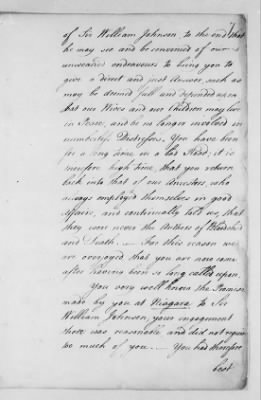 of Sir William Johnson, to the end that
he may see and be convinced of our
unwearied endeavours to bring you to
give a direct and just Answer, such as
may be deemed full and depended upon
that our Wives and our Children may live
in Peace, and be no longer involved in
numberless Distresses. You have been
for a long time in a bad Road; it is
therefore high time, that you return
back into that of our Ancestors, who
always employed themselves in good
Affairs, and continually told us, that
they were never the Authors of Bloodshed
and Death. — For this reason we
are overjoyed that you are now come
after having been so long called upon.
You very well know the Promises
made by you at Niagara to Sir
William Johnson, your engagement
there was reasonable and did not require
too much of you. — You had therefore
best